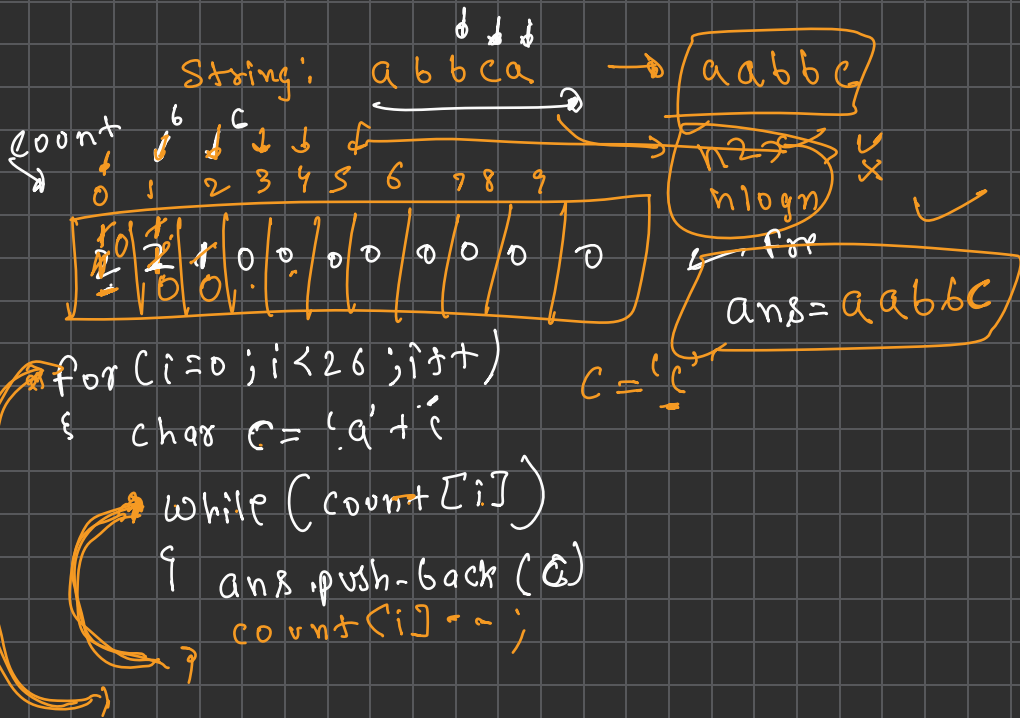 String: abbca → aabbc
count b c
0 1 2 3 4 5 6 7 8 9
n logn
2 2 1 0 0 0 0 0 0 0 0
0 0 0
for
ans= aabbc
for (i=0 ; i<26 ; i++)
c = 'c'
{ char c= 'a' + i
while (count [i])
{ ans.push-back (c)
count [i] -- ;
}
}